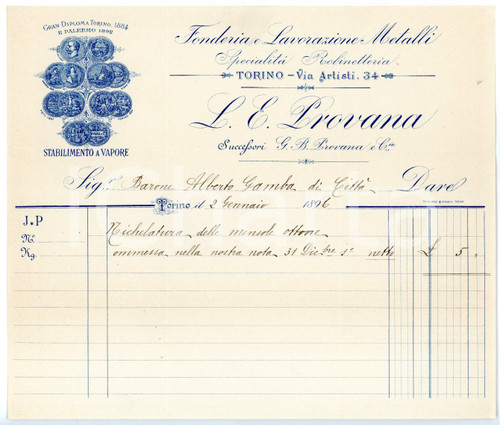 GRAN DIPLOMA TORINO 1884
E PALERMO 1892
STABILIMENTO A VAPORE
Fonderia e Lavorazione Metalli
Specialità Robinetteria
TORINO - Via Artisti, 34
L. E. Provana
Successori G. B. Provana & C.ia
Sig.r Barone Alberto Gamba di Città Dare
Torino il 2 Gennaio 1896
J.P Nichelatura delle mensole ottone
N.
Kg. ommessa nella nostra nota 31 Dicbre sc netto £ 5